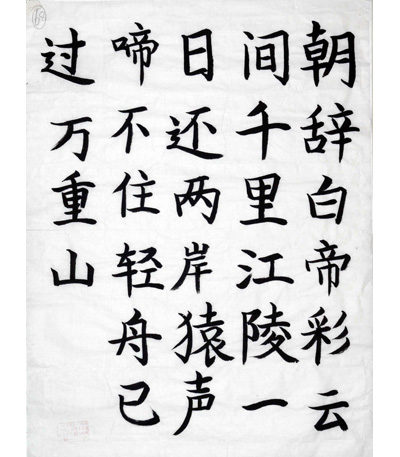 朝辞白帝彩云
间千里江陵一
日还两岸猿声
啼不住轻舟已
过万重山